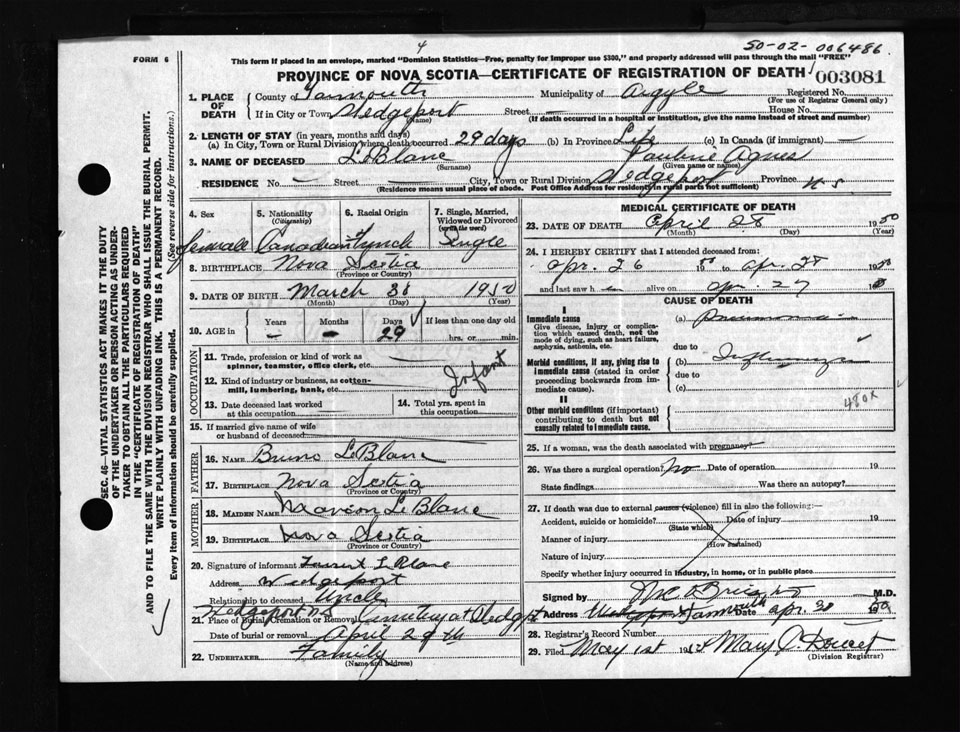 4
50-02-006486.
FORM 6
This form if placed in an envelope, marked "Dominion Statistics—Free, penalty for improper use $300," and properly addressed will pass through the mail "FREE"
PROVINCE OF NOVA SCOTIA—CERTIFICATE OF REGISTRATION OF DEATH
003081
1. PLACE OF DEATH
County of Yarmouth Municipality of Argyle Registered No.
(For use of Registrar General only)
If in City or Town Wedgeport Street House No.
(Name) (If death occurred in a hospital or institution, give the name instead of street and number)
2. LENGTH OF STAY (in years, months and days)
(a) In City, Town or Rural Division where death occurred 29 days (b) In Province Life (c) In Canada (if immigrant) —
3. NAME OF DECEASED LeBlanc Pauline Agnes
(Surname) (Given name or names)
RESIDENCE No. — Street — City, Town or Rural Division Wedgeport Province N S
(Residence means usual place of abode. Post Office Address for residents in rural parts not sufficient)
SEC. 46—VITAL STATISTICS ACT MAKES IT THE DUTY
OF THE UNDERTAKER OR PERSON ACTING AS UNDER-
TAKER TO OBTAIN ALL THE PARTICULARS REQUIRED
IN THE "CERTIFICATE OF REGISTRATION OF DEATH"
AND TO FILE THE SAME WITH THE DIVISION REGISTRAR WHO SHALL ISSUE THE BURIAL PERMIT.
WRITE PLAINLY WITH UNFADING INK. THIS IS A PERMANENT RECORD.
Every item of information should be carefully supplied. (See reverse side for instructions.)
4. Sex
5. Nationality (Citizenship)
6. Racial Origin
7. Single, Married, Widowed or Divorced (write the word)
female Canadian French Single
8. BIRTHPLACE Nova Scotia
(Province or Country)
9. DATE OF BIRTH March 1950
(Month) (Day) (Year)
10. AGE in
Years Months Days If less than one day old
— — 29 hrs. or min.
OCCUPATION
11. Trade, profession or kind of work as spinner, teamster, office clerk, etc.
Infant
12. Kind of industry or business, as cotton-mill, lumbering, bank, etc.
13. Date deceased last worked at this occupation
14. Total yrs. spent in this occupation
15. If married give name of wife or husband of deceased
FATHER
16. NAME Bruno LeBlanc
17. BIRTHPLACE Nova Scotia
(Province or Country)
MOTHER
18. MAIDEN NAME LeBlanc
19. BIRTHPLACE Nova Scotia
(Province or Country)
20. Signature of informant LeBlanc
Address Wedgeport
Relationship to deceased Uncle
Wedgeport NS
21. Place of Burial, Cremation or Removal Cemetery at Wedgept
Date of burial or removal April 29th
22. UNDERTAKER Family
(Name and address)
MEDICAL CERTIFICATE OF DEATH
23. DATE OF DEATH April 28 1950
(Month) (Day) (Year)
24. I HEREBY CERTIFY that I attended deceased from:
Apr. 26 1950 to Apr. 28 1950
and last saw h er alive on Apr. 27
CAUSE OF DEATH
I
Immediate cause
Give disease, injury or complication which caused death, not the mode of dying, such as heart failure, asphyxia, asthenia, etc.
(a) Pneumonia
due to
Morbid conditions, if any, giving rise to immediate cause (stated in order proceeding backwards from immediate cause).
(b) Influenza
due to
(c)
480x
II
Other morbid conditions (if important) contributing to death but not causally related to immediate cause.
25. If a woman, was the death associated with pregnancy?
26. Was there a surgical operation? No Date of operation 19
State findings Was there an autopsy?
27. If death was due to external causes (violence) fill in also the following:—
Accident, suicide or homicide? Date of injury 19
(State which)
Manner of injury
(How sustained)
Nature of injury
Specify whether injury occurred in industry, in home, or in public place
Signed by O'Brien M.D.
Address Yarmouth Date Apr. 30 1950
28. Registrar's Record Number
29. Filed May 1st 19 Mary Doucet
(Division Registrar)